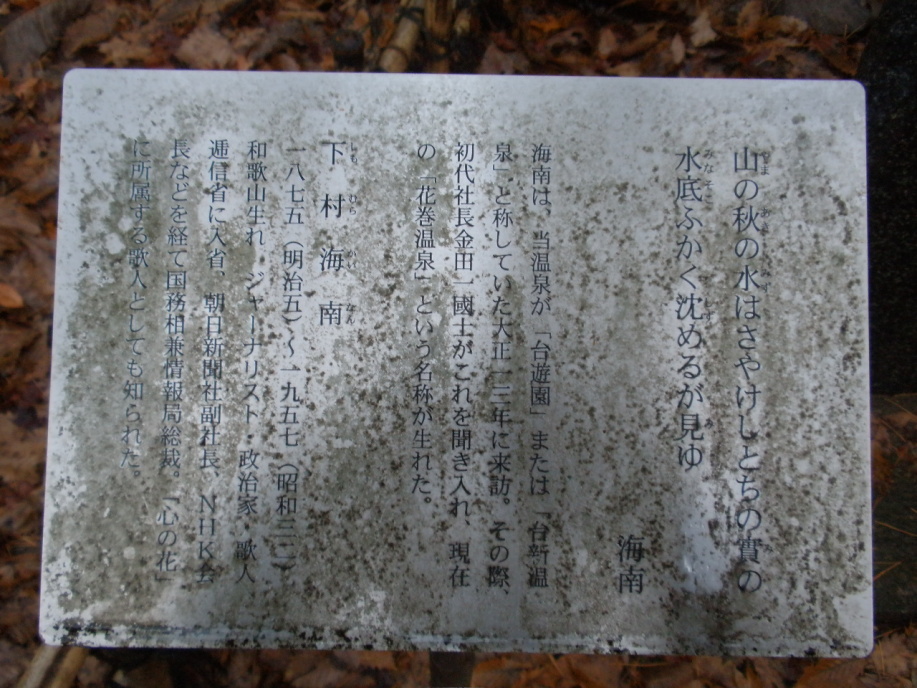 山の秋の水はさやけしとちの實の
水底ふかく沈めるが見ゆ
海南
海南は、当温泉が「台遊園」または「台新温
泉」と称していた大正一三年に来訪。その際、
初代社長金田一國士がこれを聞き入れ、現在
の「花巻温泉」という名称が生れた。
下村海南
一八七五(明治五)〜一九五七(昭和三二)
和歌山生れ ジャーナリスト・政治家・歌人
逓信省に入省、朝日新聞社副社長、NHK会
長などを経て国務相兼情報局総裁。「心の花」
に所属する歌人としても知られた。